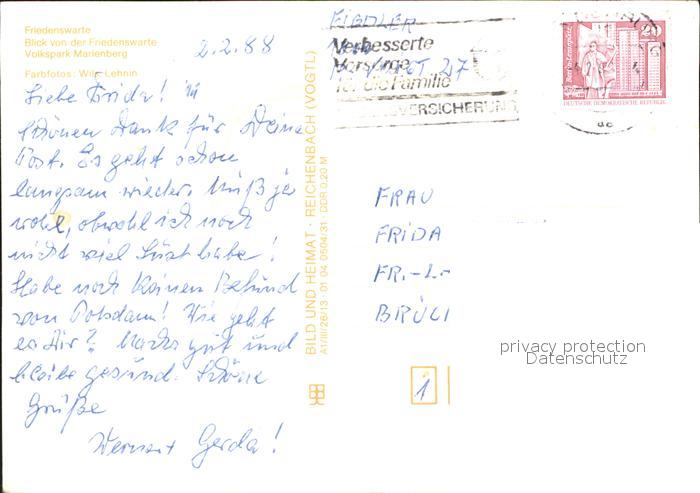 Friedenswarte
Blick von der Friedenswarte
Volkspark Marienberg
Farbfotos: Willi Lehnin
2.2.88
Liebe Frida!
Schönen Dank für Deine
Post. Es geht schon
langsam wieder. Muß ja
wohl, obwohl ich noch
nicht viel Lust habe!
Habe noch keinen Befund
von Potsdam! Wie geht
es Dir? Machs gut und
bleibe gesund. Schöne
Grüße
Werner + Gerda!
BILD UND HEIMAT · REICHENBACH (VOGTL)
A1/III/26/13 · 01 04 0504/31 · DDR 0,20 M
FIEDLER
27
Verbesserte
Vorsorge
für die Familie
VERSICHERUNG
20
Berlin-Leninplatz
DEUTSCHE DEMOKRATISCHE REPUBLIK
FRAU
FRIDA
FR.-L-
BRÜLI
1
privacy protection
Datenschutz